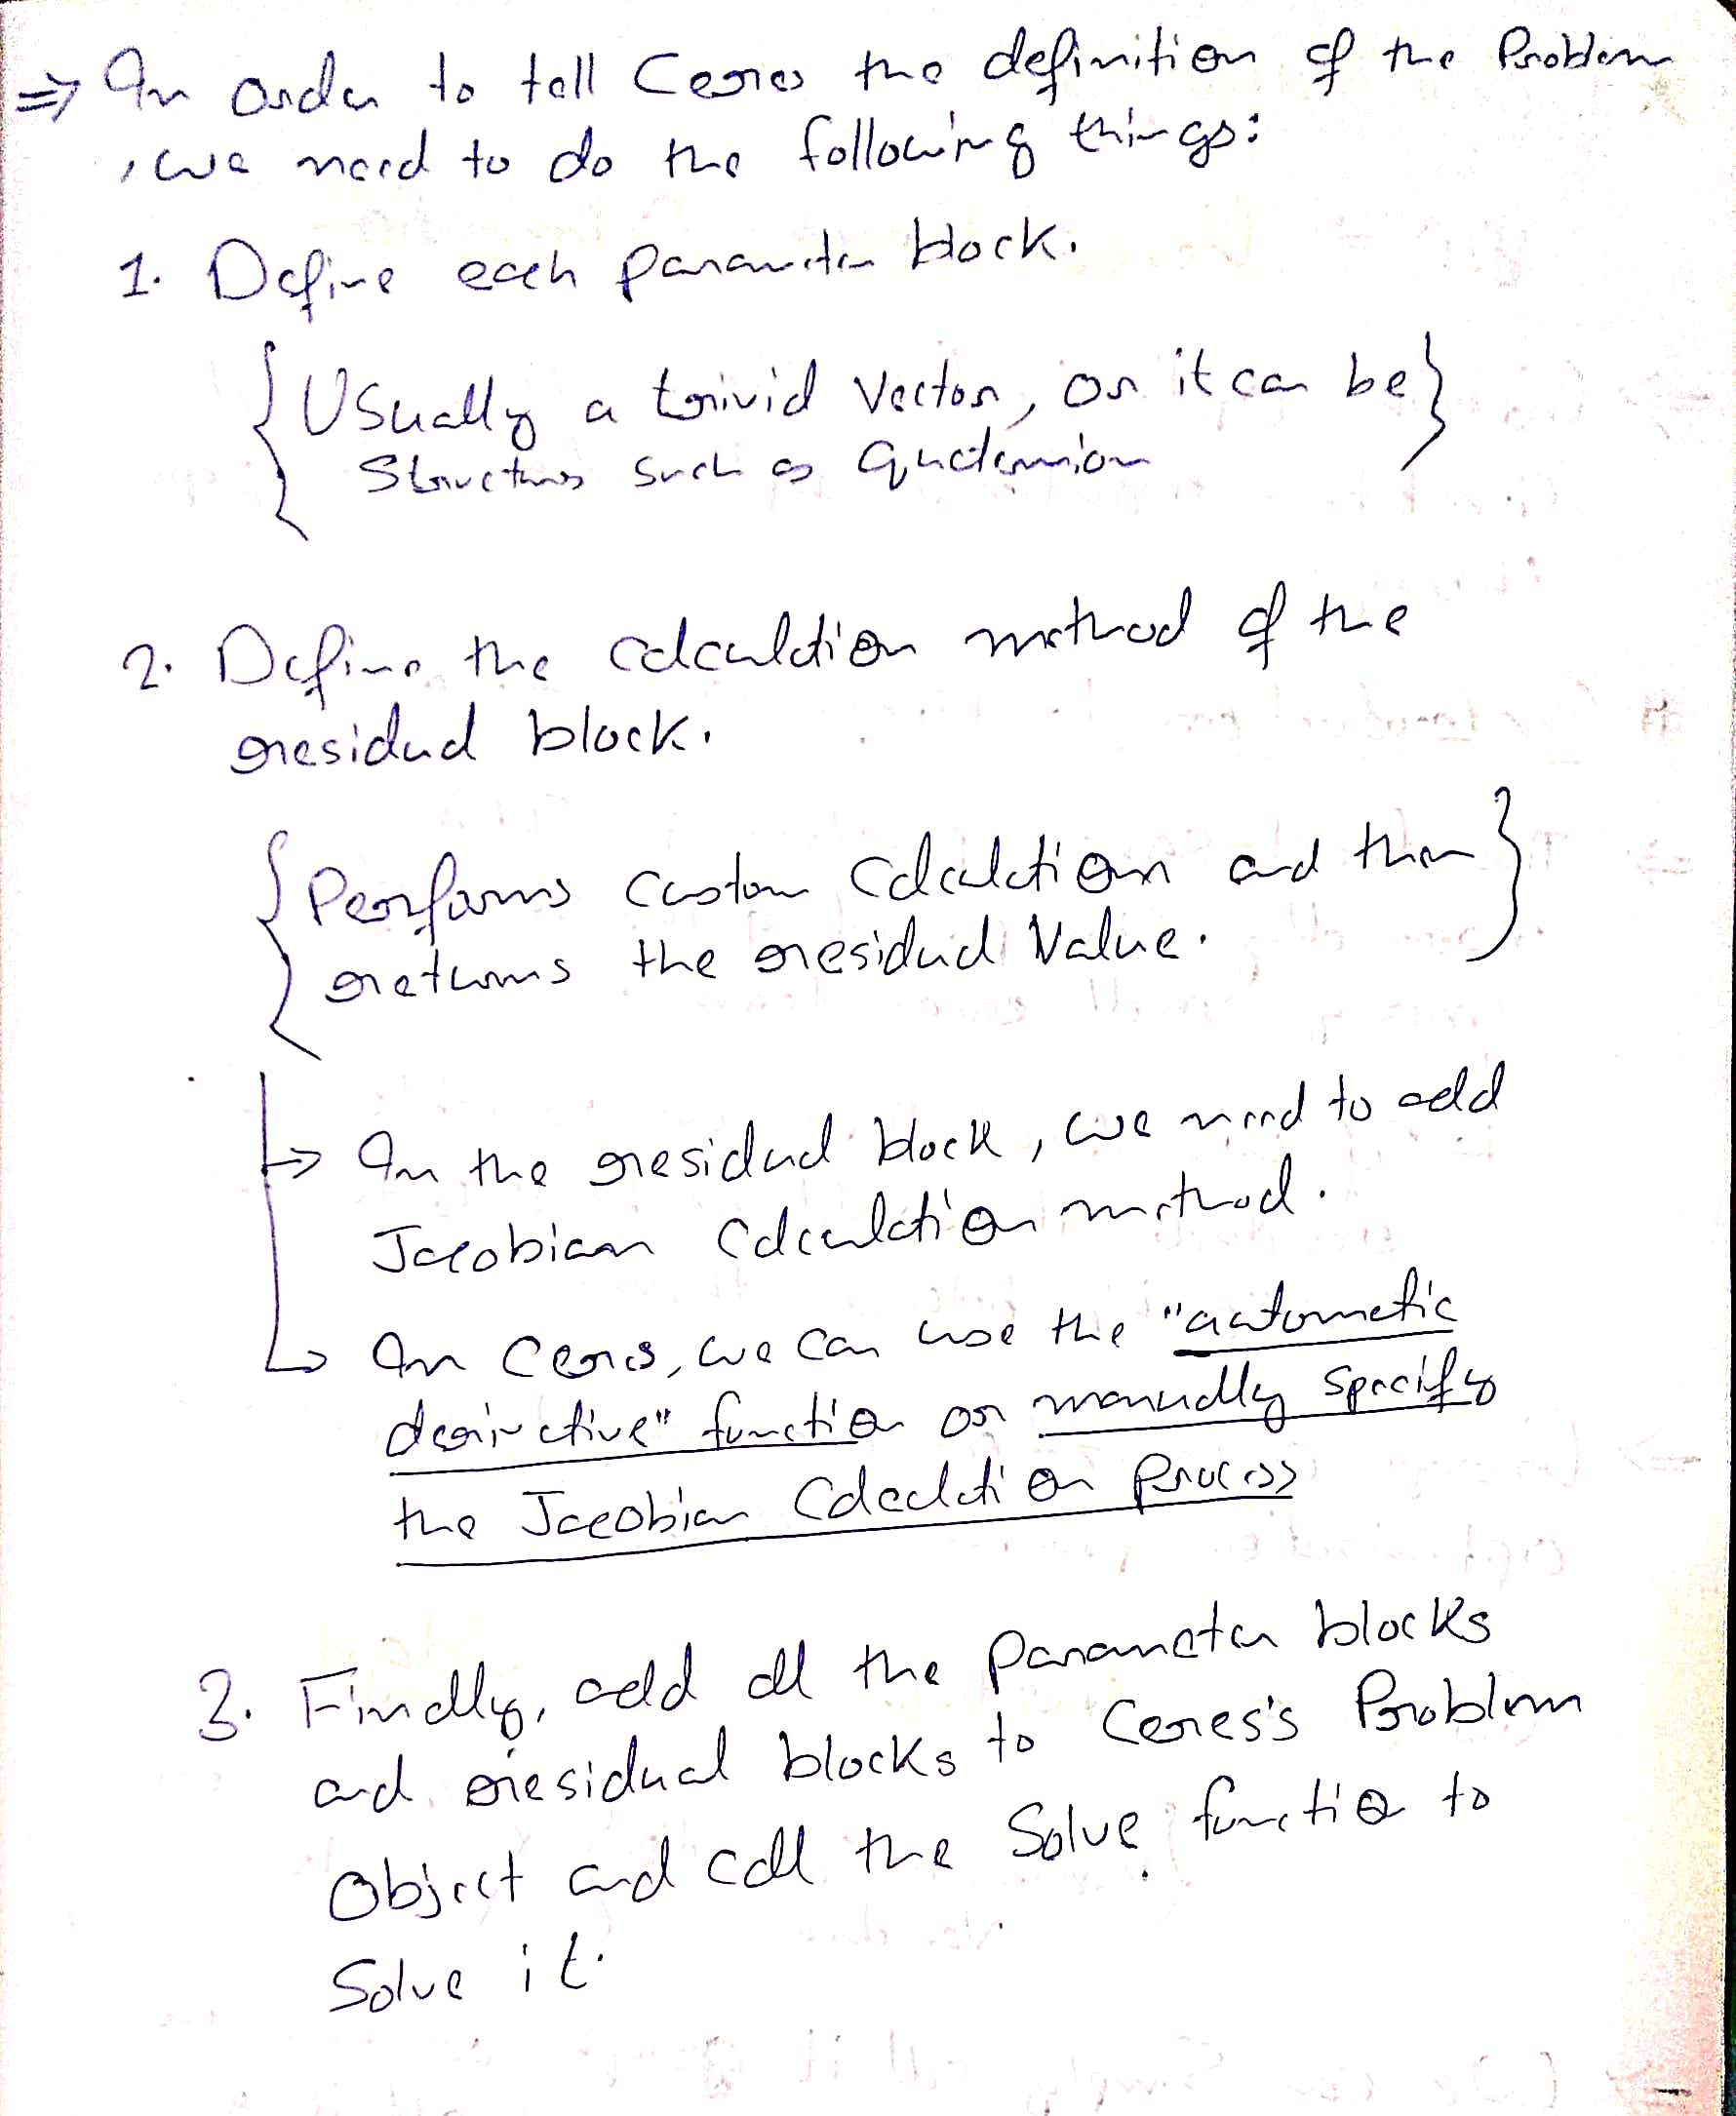 ⇒ In order to tell Ceres the definition of the Problem
, we need to do the following things:
1. Define each parameter block.
{ Usually a trivial Vector, or it can be }
Structures such as Quaternion
2. Define the calculation method of the
residual block.
{ Performs custom calculation and then }
returns the residual Value.
→ In the residual block, we need to add
Jacobian Calculation method.
↳ In Ceres, we can use the "automatic
derivative" function or manually specify
the Jacobian Calculation Process
3. Finally, add all the Parameter blocks
and residual blocks to Ceres's Problem
Object and call the Solve function to
Solve it.